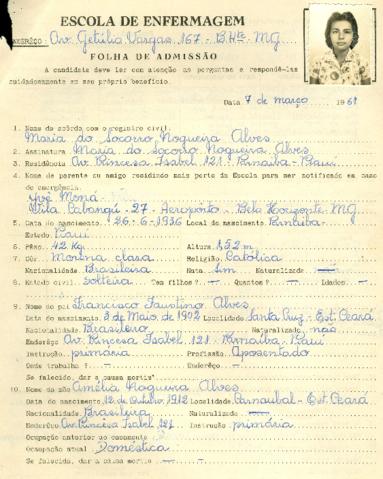 ESCOLA DE ENFERMAGEM
Av. Getúlio Vargas, 167 - B. Hte. MG
FOLHA DE ADMISSÃO
A candidata deve ler com atenção as perguntas e respondê-las
cuidadosamente em seu próprio benefício.
Data 7 de março 1961
1. Nome de acôrdo com o registro civil:
Maria do Socorro Nogueira Alves
2. Assinatura Maria do Socorro Nogueira Alves
3. Residência Av. Princesa Isabel 121 - Parnaíba - Piauí
4. Nome de parente ou amigo residindo mais perto da Escola para ser notificado em caso
de emergência.
Vila Cabangú - 27 - Aeropôrto - Belo Horizonte - MG
5. Data do nascimento 26-6-1936 Local do nascimento Parnaíba
Estado Piauí
6. Pêso 42 Kg Altura 1,52 m
7. Côr Morena clara Religião Católica
Nacionalidade Brasileira Nata Sim Naturalizada —
8. Estado civil solteira Tem filhos? — Quantos? — Idades —
9. Nome do pai Francisco Faustino Alves
Data do nascimento 3 de Maio de 1902 Localidade Santa Cruz - Est. Ceará
Nacionalidade Brasileiro Naturalizado não
Enderêço Av. Princesa Isabel 121 - Parnaíba - Piauí
Instrução primária Profissão Aposentado
Onde trabalha? — Enderêço —
Se falecido, dar a causa mortis
10. Nome da mãe Amélia Nogueira Alves
Data do nascimento 12 de Outubro 1912 Localidade Carnaubal - Est. Ceará
Nacionalidade Brasileira Naturalizada —
Enderêço Av. Princesa Isabel 121 Instrução primária
Ocupação anterior ao casamento
Ocupação atual Doméstica
Se falecida, dar a causa mortis — —